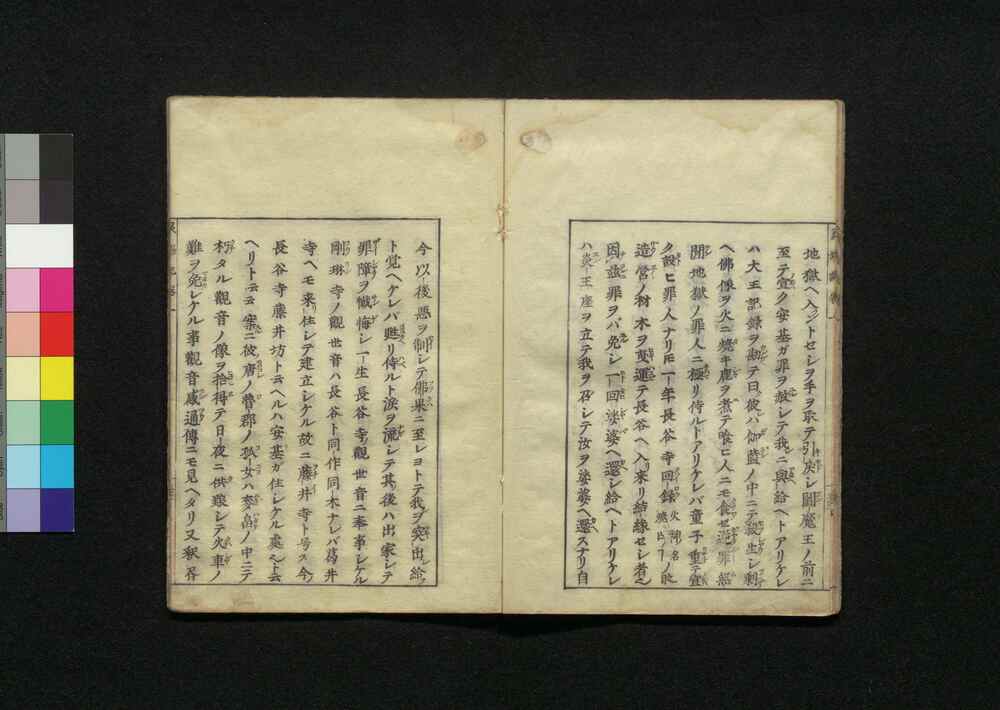 地獄ヘ入ントセシヲ手ヲ取テ引戻シ閻魔王ノ前ニ
至テ宣ク安基ガ罪ヲ赦シテ我ニ與給ヘトアリケレ
バ大王記録ヲ勘テ曰彼ハ伽藍ノ中ニテ殺生シ剰
ヘ佛像ヲ火ニ燒キ鹿ヲ煮テ喰ヒ人ニモ食セ逆罪
開地獄ノ罪人ニ極リ侍ルトアリケレバ童子重テ宣
ク設ヒ罪人ナリトモ一年長谷寺回録火神名ノ時
造營ノ材木ヲ曳運テ長谷ヘ入來リ結縁セシ者ヘ
因茲罪ヲバ免シ一回娑婆ヘ還シ給ヘトアリケレ
バ炎王座ヲ立テ我ヲ召シテ汝ヲ娑婆ヘ還スナリ自
今以後惡ヲ制シテ佛果ニ至レヨトテ我ヲ突出シ給フ
ト覚ヘケレバ甦リ侍ルト涙ヲ流シテ其後ハ出家シテ
罪障ヲ懺悔シ一生長谷寺ノ觀世音ニ奉事シケル
剛琳寺ノ觀世音ハ長谷ト同作同木ナレバ葛井
寺ヘモ來住シテ建立シケル故ニ藤井寺ト号ス今
長谷寺藤井坊ト云ヘルハ安基ガ住シケル處ト云
ヘリト云云案ニ彼唐ノ曹郡ノ狐女ハ麥畠ノ中ニテ
朽タル觀音ノ像ヲ拾得テ日夜ニ供粮シテ火車ノ
難ヲ免レケル事觀音感通傳ニモ見ヘタリ又釈